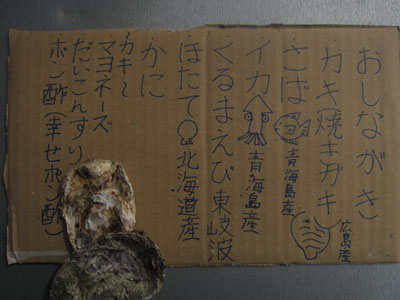 おしながき
カキ(焼キガキ 広島産
さば 青海島産
イカ 青海島産
くるまえび 東岐波
ほたて 北海道産
かに
カキ〜
マヨネーズ
だいこんすり
ポン酢(幸せポン酢)